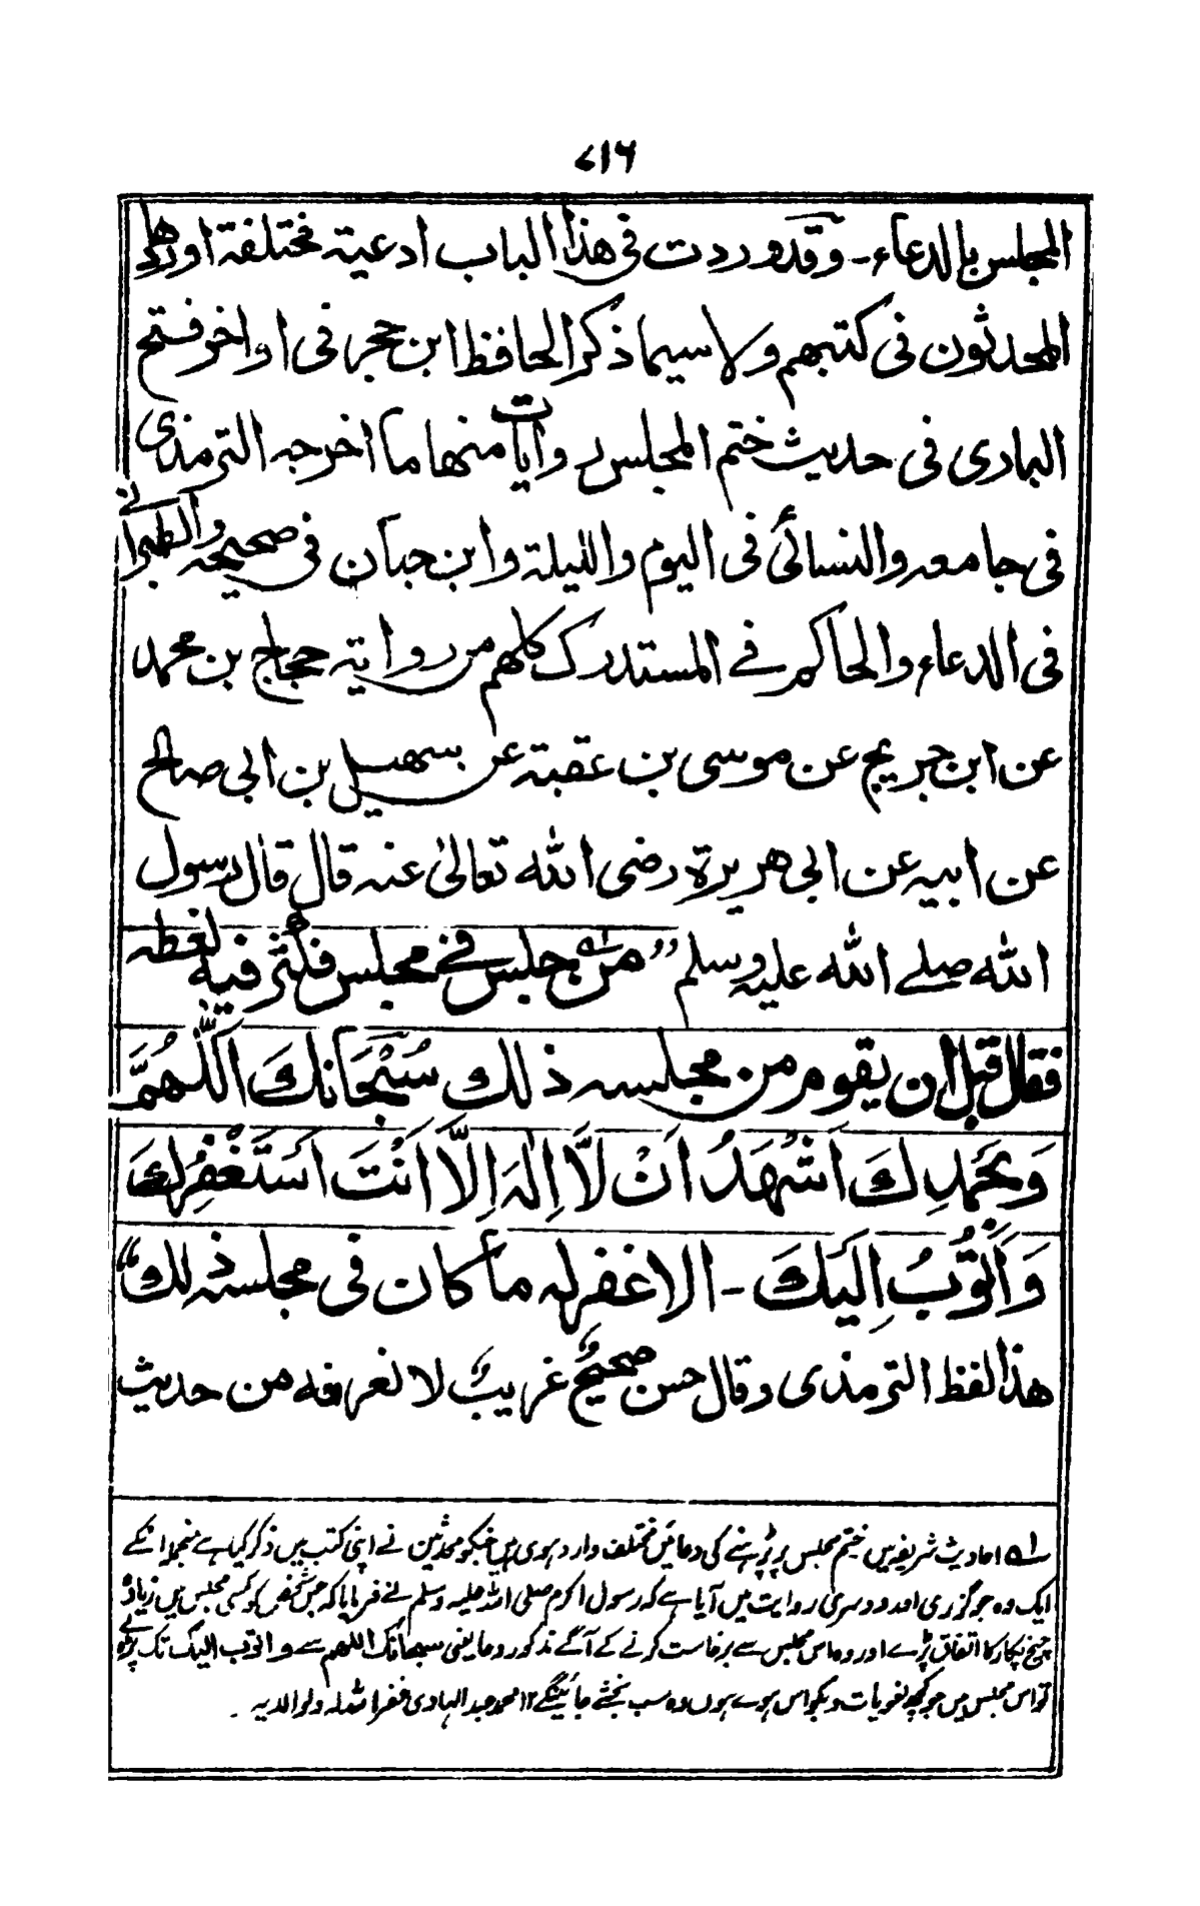 ۷۱۶
المجلس بالدعاء - وقد وردت فی هذا الباب ادعیة مختلفة اوردها
المحدثون فی کتبهم ولا سیما ذکر الحافظ ابن حجر فی اواخر فتح
الباری فی حدیث ختم المجلس روایات منها ما اخرجه الترمذی
فی جامعه والنسائی فی الیوم واللیلة وابن حبان فی صحیحه والطبرانے
فی الدعاء والحاکم فے المستدرک کلهم من روایة حجاج بن محمد
عن ابن جریج عن موسی بن عقبة عن سهیل بن ابی صالح
عن ابیه عن ابی هریرة رضی الله تعالیٰ عنه قال قال رسول
الله صلے الله علیه وسلم ”من ۱؎ جلس فے مجلس فکثر فیه لغطه
فقال قبل ان یقوم من مجلسه ذلك سُبْحَانَكَ اَللّٰهُمَّ
وَبِحَمْدِكَ اَشْهَدُ اَنْ لَّا اِلٰهَ اِلَّا اَنْتَ اَسْتَغْفِرُكَ
وَاَتُوْبُ اِلَيْكَ - الا غفر له ما کان فی مجلسه ذلك“
هذا لفظ الترمذی وقال حسن صحیحٌ غریبٌ لا نعرفه من حدیث
۱؎ احادیث شریفہ میں ختم مجلس پر پڑہنے کی دعائیں مختلف وارد ہوی ہیں جنکو محدثین نے اپنی کتب میں ذکر کیا ہے منجملہ انکے
ایک وہ جو گزری اور دوسری روایت میں آیا ہے کہ رسول اکرم صلی اللہ علیہ وسلم نے فرمایا کہ جس شخص کو کسی مجلس میں زیادہ
چیخ پکار کا اتفاق پڑے اور وہ اس مجلس سے برخاست کرنے کے آگے مذکور دعا یعنی سبحانک اللهم سے واتوب الیک تک پڑہے
تو اس مجلس میں جو کچھ لغویات و بکواس ہوے ہوں وہ سب بخشے جائینگے ۱۲ محمد عبد الہادی غفر اللہ لہ ولوالدیہ ۔